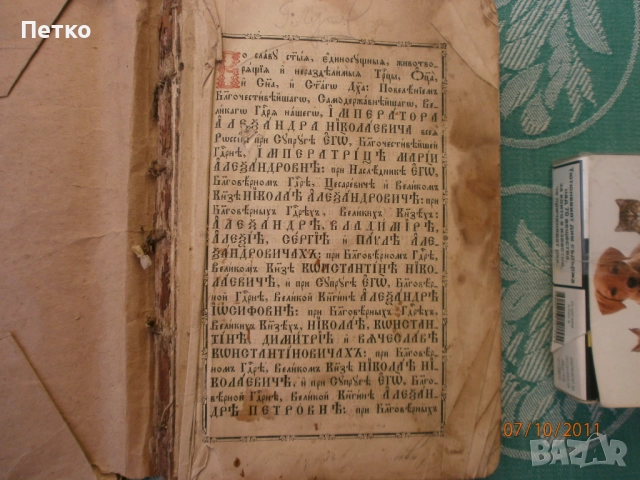 Петко
Во славу ст҃ыѧ, є҆диносꙋщныѧ, животво-
рѧщїѧ и҆ нераздѣлимыѧ Трⷪ҇цы, Ѻ҆ц҃а̀,
и҆ Сн҃а, и҆ Ст҃а́гѡ Дх҃а: Повелѣнїемъ
Бл҃гочестивѣ́йшагѡ, Самодержавнѣ́йшагѡ, Ве-
ликагѡ Гдⷭ҇рѧ нашегѡ, І҆МПЕРАТОРА
АЛЕѮАНДРА НІКОЛАЕВИЧА всеѧ̀
Рѡссі́и: при Сꙋпрꙋгѣ Є҆ГѠ̀, Бл҃гочестивѣйшей
Гдⷭ҇рнѣ, І҆МПЕРАТРИЦѢ МАРІИ
АЛЕѮАНДРОВНѢ: при Наслѣдникѣ Є҆ГѠ̀,
Бл҃говѣрномъ Гдⷭ҇рѣ, Цесаревичѣ и҆ Великомъ
Кнѧ́зѣ НІКОЛАѢ АЛЕѮАНДРОВИЧѢ: при
Бл҃говѣрныхъ Гдⷭ҇рехъ, Великихъ Кнѧ́зехъ:
АЛЕѮАНДРѢ, ВЛАДИМІРѢ,
АЛЕѮІИ, СЕРГІИ и҆ ПАѴЛѢ АЛЕ-
ѮАНДРОВИЧАХЪ: при Бл҃говѣрномъ Гдⷭ҇рѣ,
Великомъ Кнѧ́зѣ КѠНСТАНТІНѢ НІКО-
ЛАЕВИЧѢ, и҆ при Сꙋпрꙋгѣ Є҆ГѠ̀, Бл҃говѣр-
ной Гдⷭ҇рнѣ, Великой Кнѧги́нѣ АЛЕѮАНДРѢ
І҆ѠСИФОВНѢ: при Бл҃говѣрныхъ Гдⷭ҇рехъ,
Великихъ Кнѧ́зехъ, НІКОЛАѢ, КѠНСТАН-
ТІНѢ, ДИМИТРІИ и҆ ВѦЧЕСЛАВѢ
КѠНСТАНТІНОВИЧАХЪ: при Бл҃говѣр-
номъ Гдⷭ҇рѣ, Великомъ Кнѧ́зѣ НІКОЛАѢ НІ-
КОЛАЕВИЧѢ, и҆ при Сꙋпрꙋгѣ Є҆ГѠ̀, Бл҃го-
вѣрной Гдⷭ҇рнѣ, Великой Кнѧги́нѣ АЛЕѮАН-
ДРѢ ПЕТРОВНѢ: при Бл҃говѣрныхъ
07/10/2011
BAZAR
bg